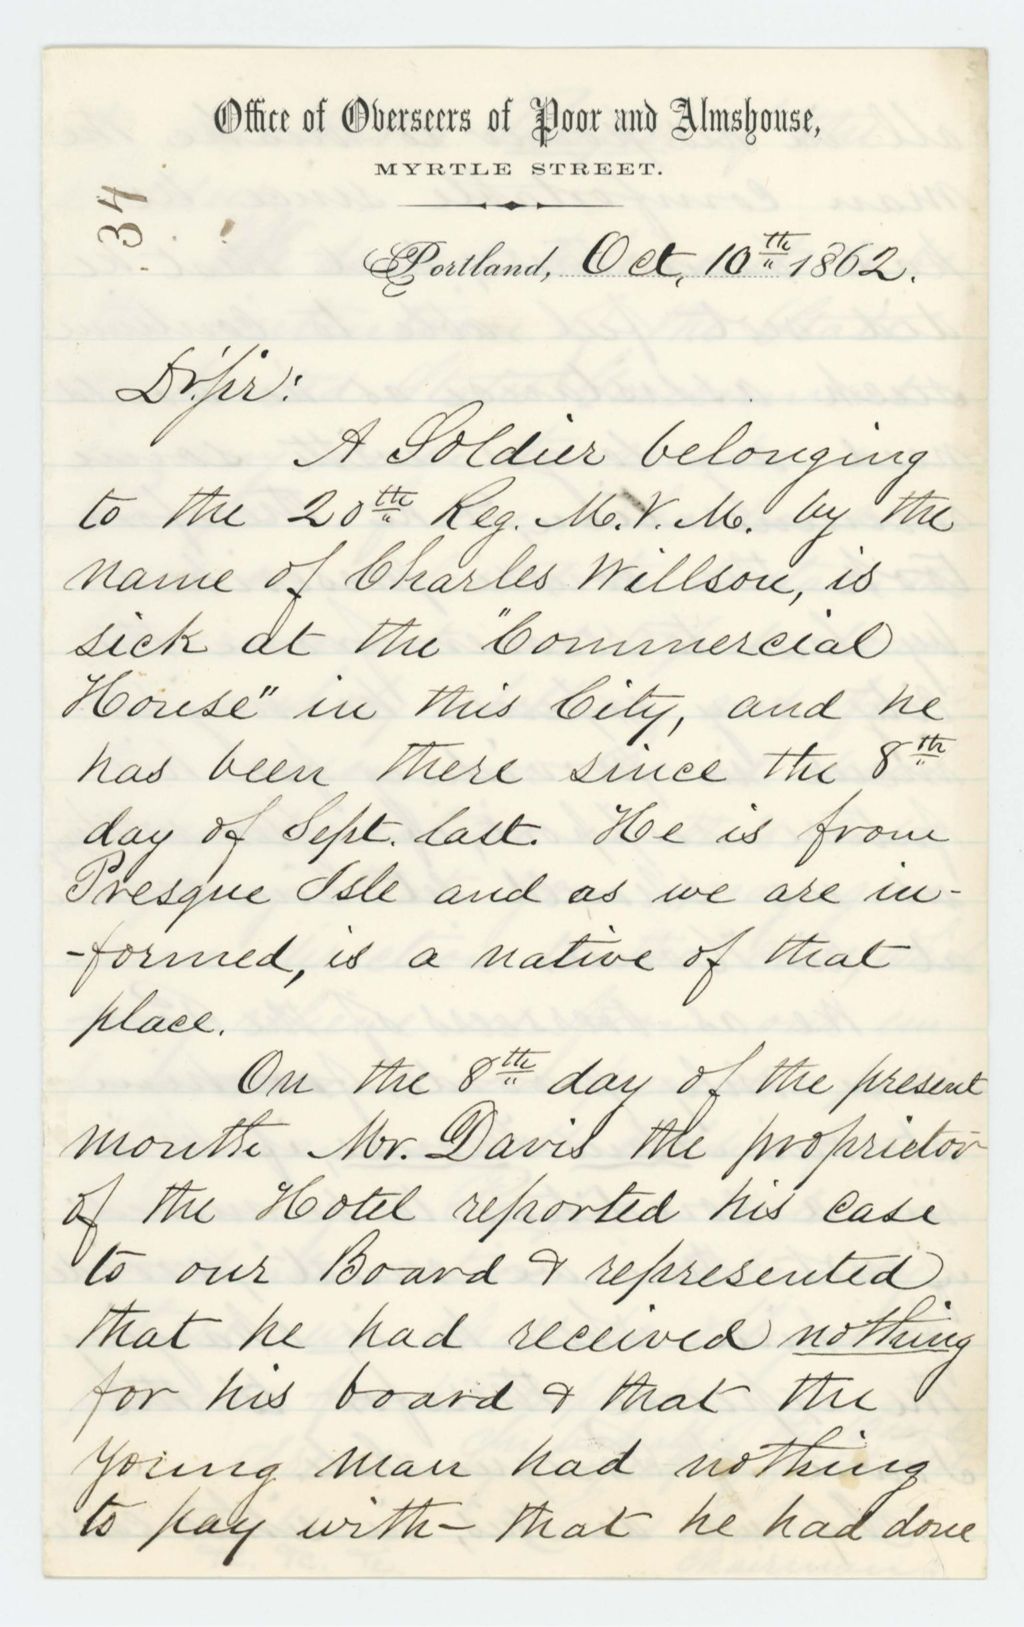 Office of Overseers of Poor and Almshouse,
MYRTLE STREET.
34
Portland, Oct. 10th 1862.
Dr. Sir:
A Soldier belonging
to the 20th Reg. M.V.M. by the
name of Charles Willson, is
sick at the "Commercial
House" in this City, and he
has been there since the 8th
day of Sept. last. He is from
Presque Isle and as we are in-
-formed, is a native of that
place.
On the 8th day of the present
month Mr. Davis the proprietor
of the Hotel reported his case
to our Board & represented
that he had received nothing
for his board & that the
young man had nothing
to pay with - that he had done